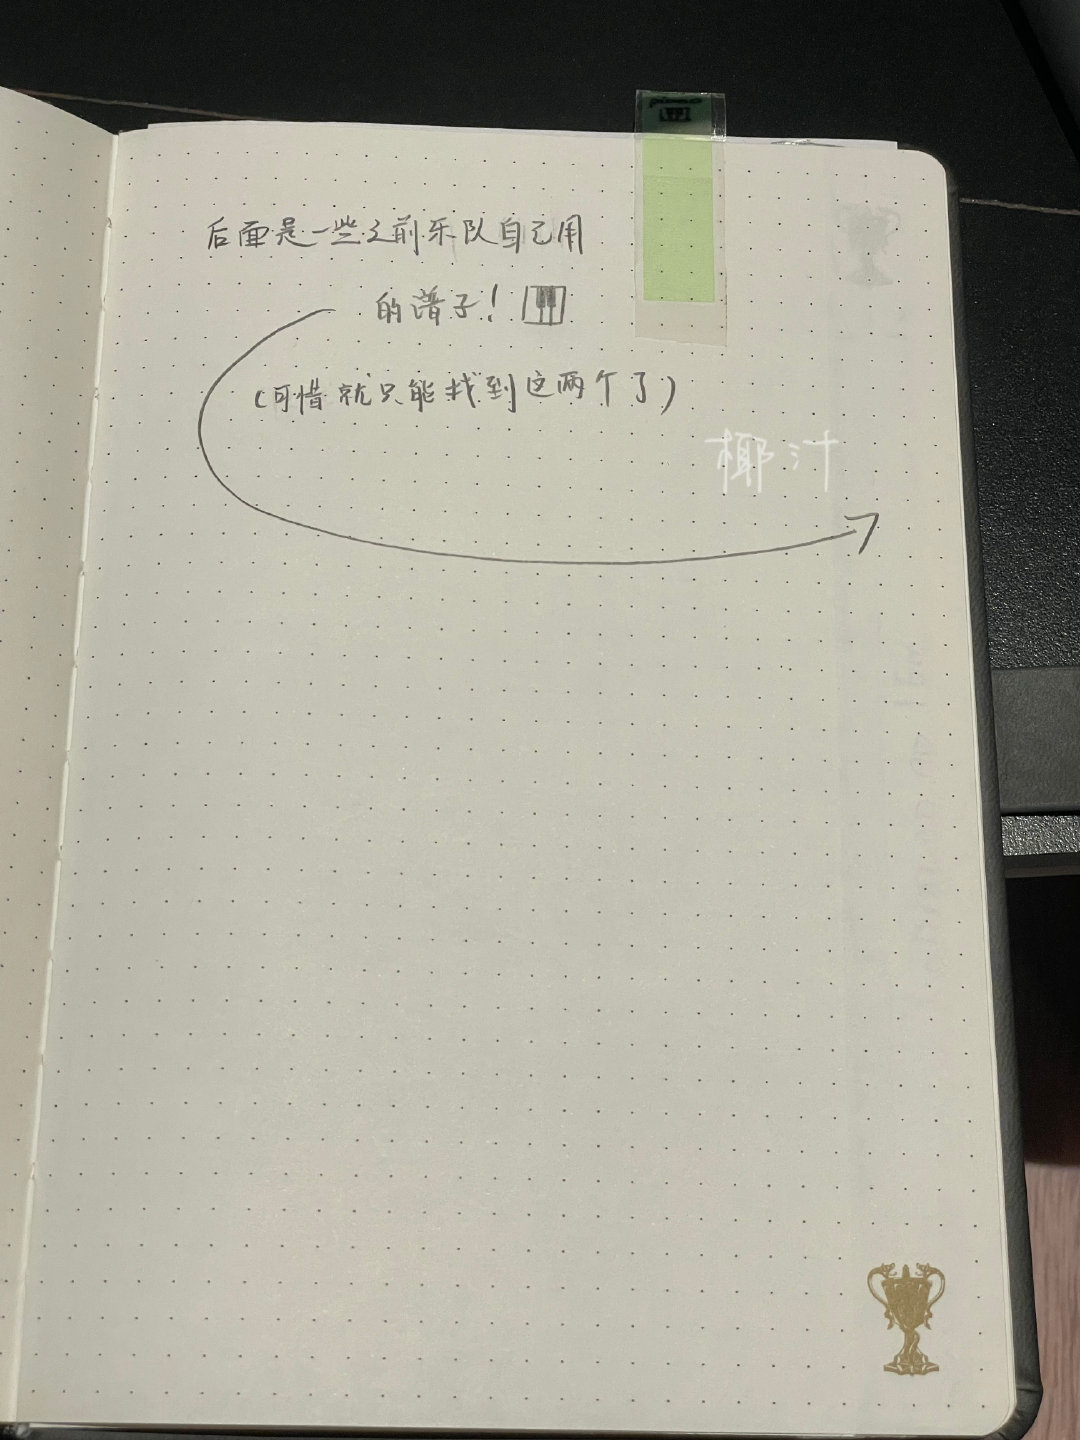 piano
后面是一些之前乐队自己用
的谱子！
（可惜就只能找到这两个了）
椰汁